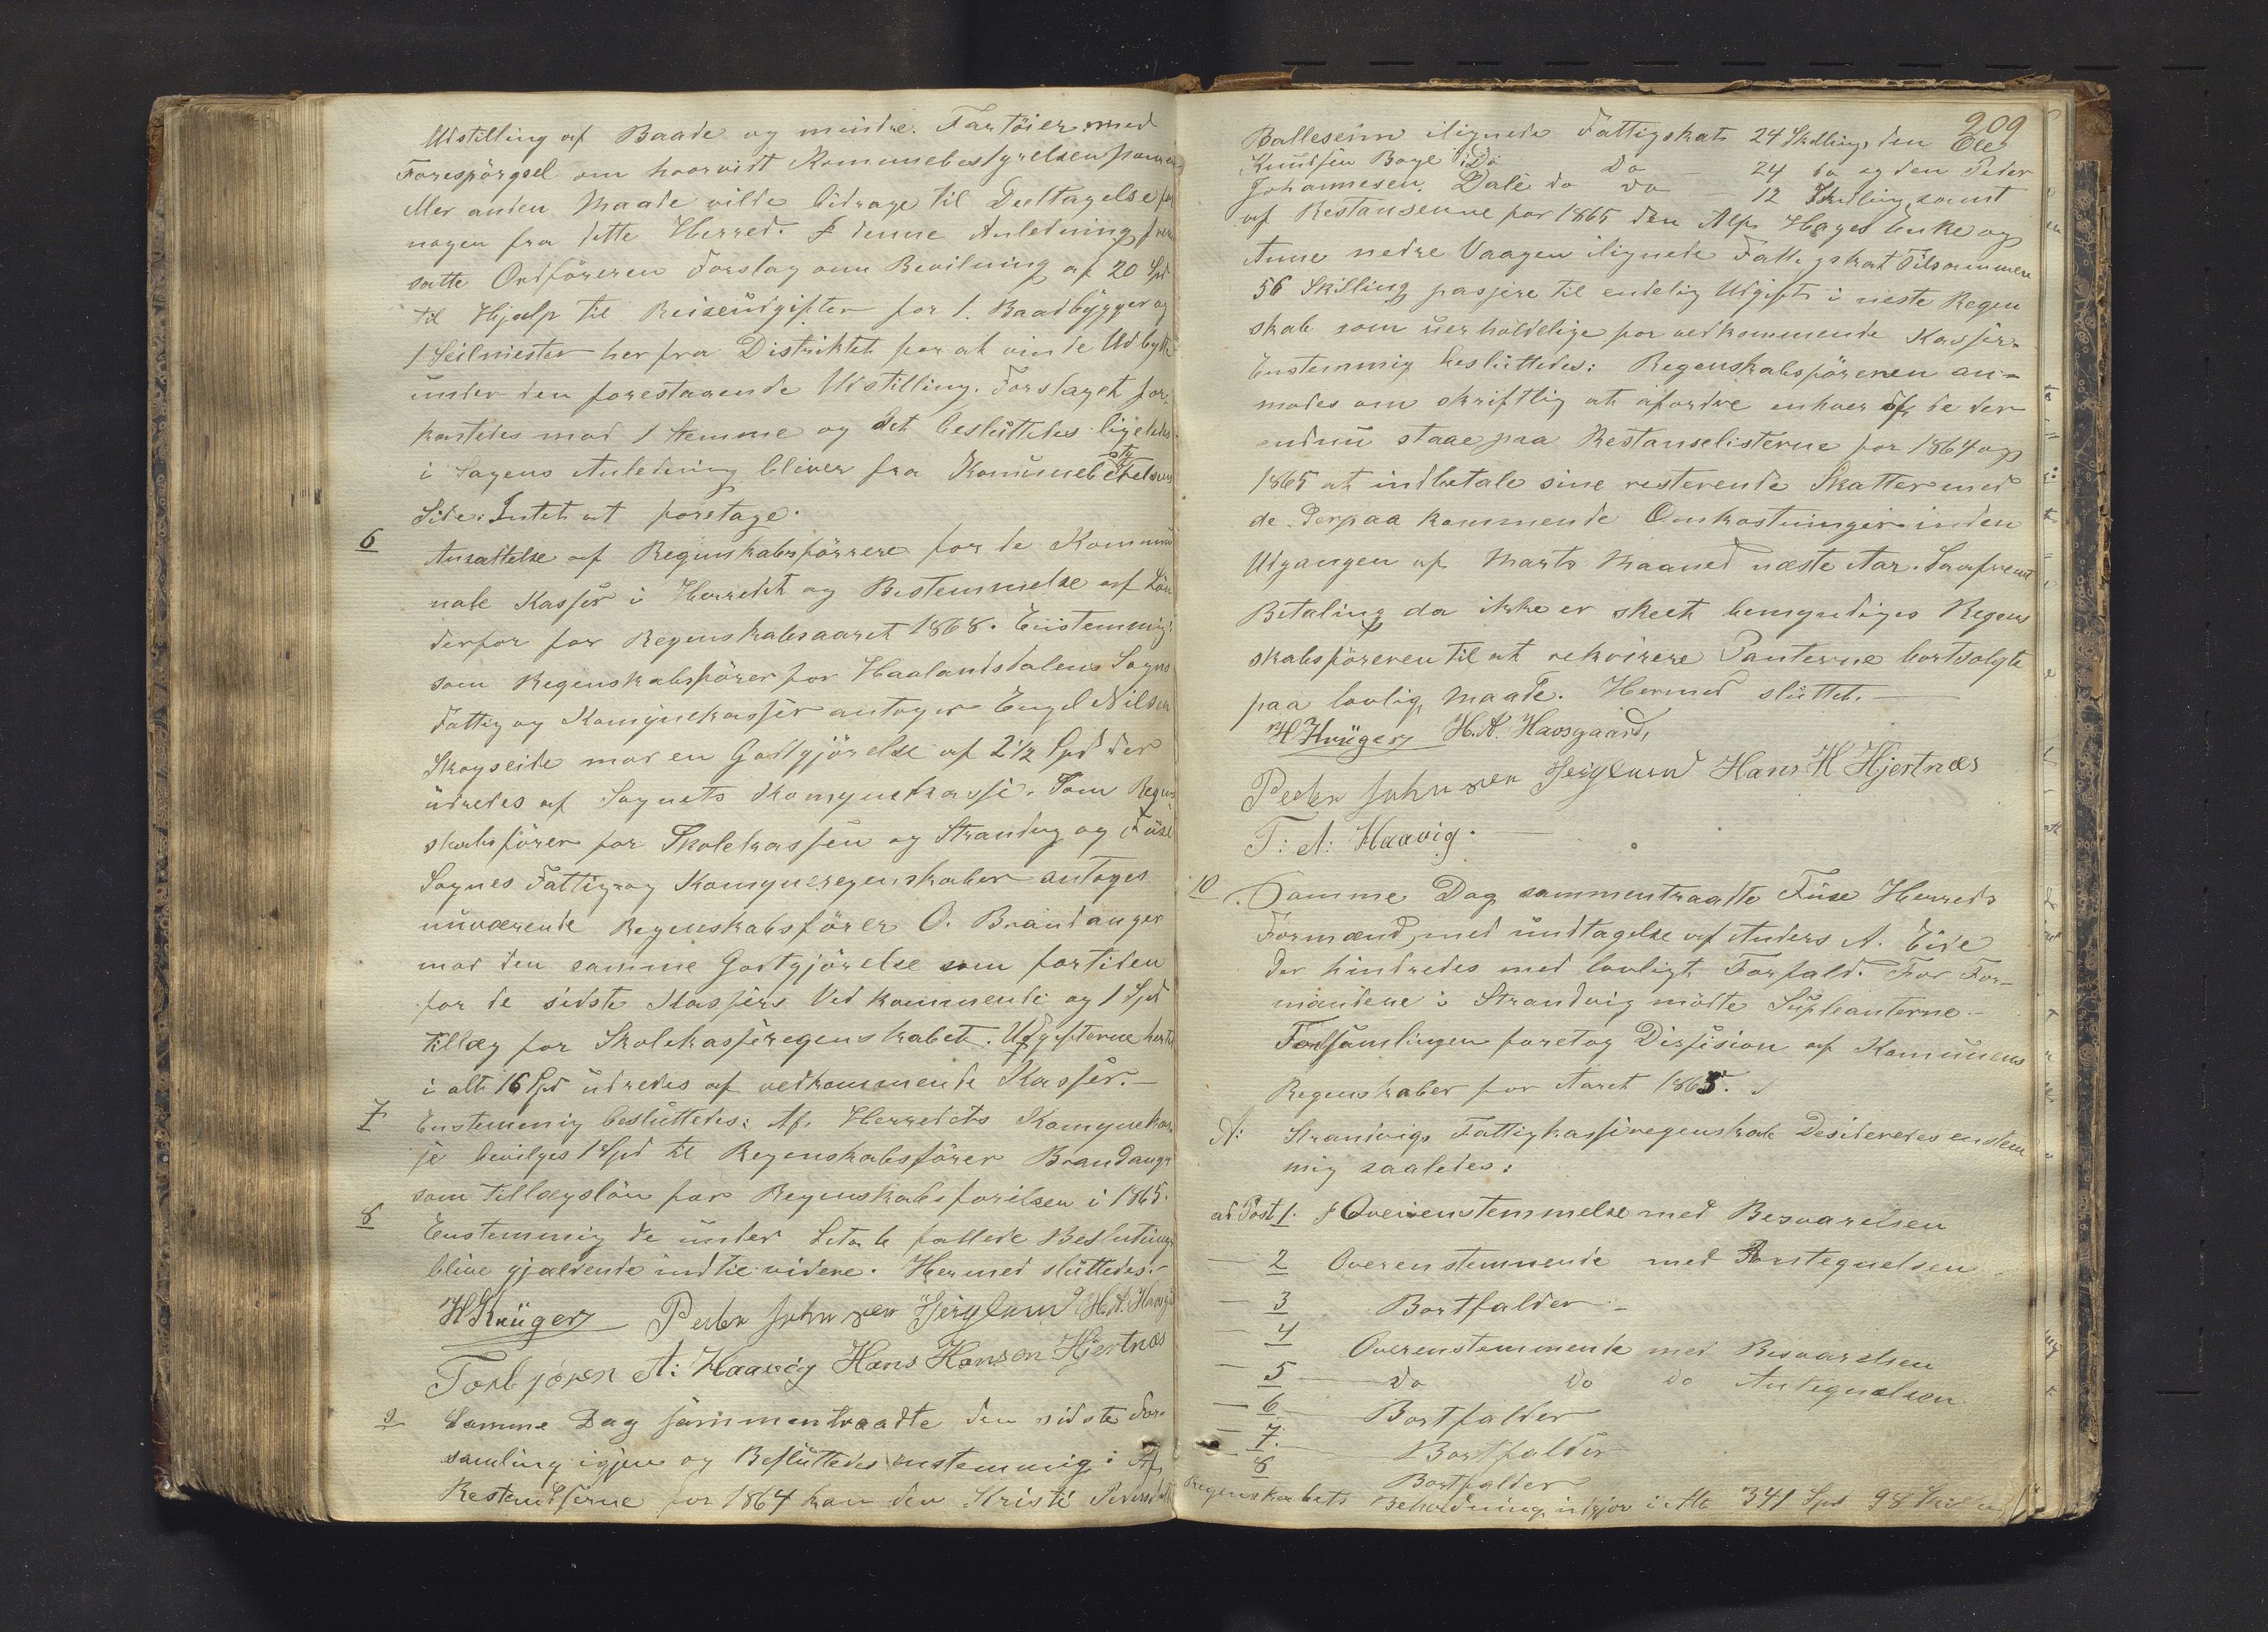 Udstilling af Baade og mindre Fartöier med
Forespörgsel om hvorvidt Kommunebestyrelsen paa en
eller anden Maade vilde bidrage til Deeltagelse for
nogen fra dette Herred. I denne Anledning frem
satte Ordföreren Forslag om Bevilning af 20 Spd
til Hjælp til Reiseudgifter for 1 Baadbygger og
1 Seilmester her fra Distriktet for at vinde Udbytte
under den forestaaende Udstilling. Forslaget for-
kastedes mod 1 Stemme og det besluttedes ligeledes
i Sagens Anledning bliver fra Komunebestyrelsens
Side Intet at foretage.
6
Ansættelse af Regnskabsförere for de Kommu
nale Kasser i Herredet og Bestemmelse af Lön
derfor for Regnskabsaaret 1868. Enstemmig:
som Regnskabsförer for Haalandsdalens Sogns
Fattig og Komynekasser antoges Engel Nilsen
Skogseide mod en Godtgjörelse af 2 1/2 Spd der
udredes af Sognets Komynekasse. Som Regn-
skabsförer for Skolekassen og Strandvig og Fuse
Sognes Fattig- og Komyneregnskaber antoges
nuværende Regnskabsförer O. Brandanger
mod den samme Godtgjörelse som fortiden
for de sidste Kassers Vedkommende og 1 Spd
tillæg for Skolekasseregnskabet. Udgifterne hertil
i alt 16 Spd udredes af vedkommende Kasser.
7
Enstemmig besluttedes: Af Herredets Komynekas-
se bevilges 1 Spd til Regnskabsförer Brandanger
som Tillægslön for Regnskabsförelsen i 1865.
8
Enstemmig de under Litr. b fattede Beslutninger
blive gjældende indtil videre. Hermed sluttedes.
H Krüger Peder Johnsen Jerglum H. A. Havsgd
Torbjören A: Haavig Hans Hansen Hjertnæs
9
Samme Dag sammentraadte den sidste For-
samling igjen og Besluttedes enstemmig: Af
Restandserne for 1864 kan den Kristi Persdatter
209
Ballesem ilignede Fattigskat 24 Skilling, den Ole
Knudsen Boge i Do Do - 24 do og den Peder
Johannesen Dale do do 12 Skilling samt
af Restanserne for 1865 den Alfr Hages Enke og
Anne nedre Vaagen ilignede Fattigskat Tilsammen
56 Skilling passere til endelig Udgift i neste Regn
skab som uerholdelige for vedkommende Kasser.
Enstemmig besluttedes: Regnskabsföreren an-
modes om skriftlig at afordre enhver af de der
endnu staae paa Restanselisterne for 1864 og
1865 at indbetale sine resterende Skatter med
de derpaa kommende Omkostninger inden
Udgangen af Marts Maaned næste Aar. Saafremt
Betaling da ikke er skeet bemyndiges Regn
skabsföreren til at rekvirere Panterne bortsolgte
paa lovlig Maade. Hermed sluttet.
H Krüger H. A. Havsgaard,
Peder Johnsen Jerglum Hans H Hjertnæs
T: A: Haavig.
10
Samme Dag sammentraadte Fuse Herreds
Formænd, med undtagelse af Anders A. Eide
der hindredes med lovligt Forfald. For For-
mændene i Strandvig mödte Supleanterne.
Forsamlingen foretog Disision af Komunens
Regnskaber for Aaret 1865.
A:
Strandvigs Fattigkasseregnskab Desideredes enstem
mig saaledes:
ad Post 1. I Overenstemmelse med Besvarelsen
- 2 Overenstemmende med Antegnelsen
- 3 Bortfalder
- 4 Overenstemmende med Besvarelsen
- 5 do do do Antegnelsen
- 6 Bortfalder
- 7 Bortfalder
- 8 Bortfalder
Regnskabets Beholdning udgjör i alt 341 Spd 98 Skil